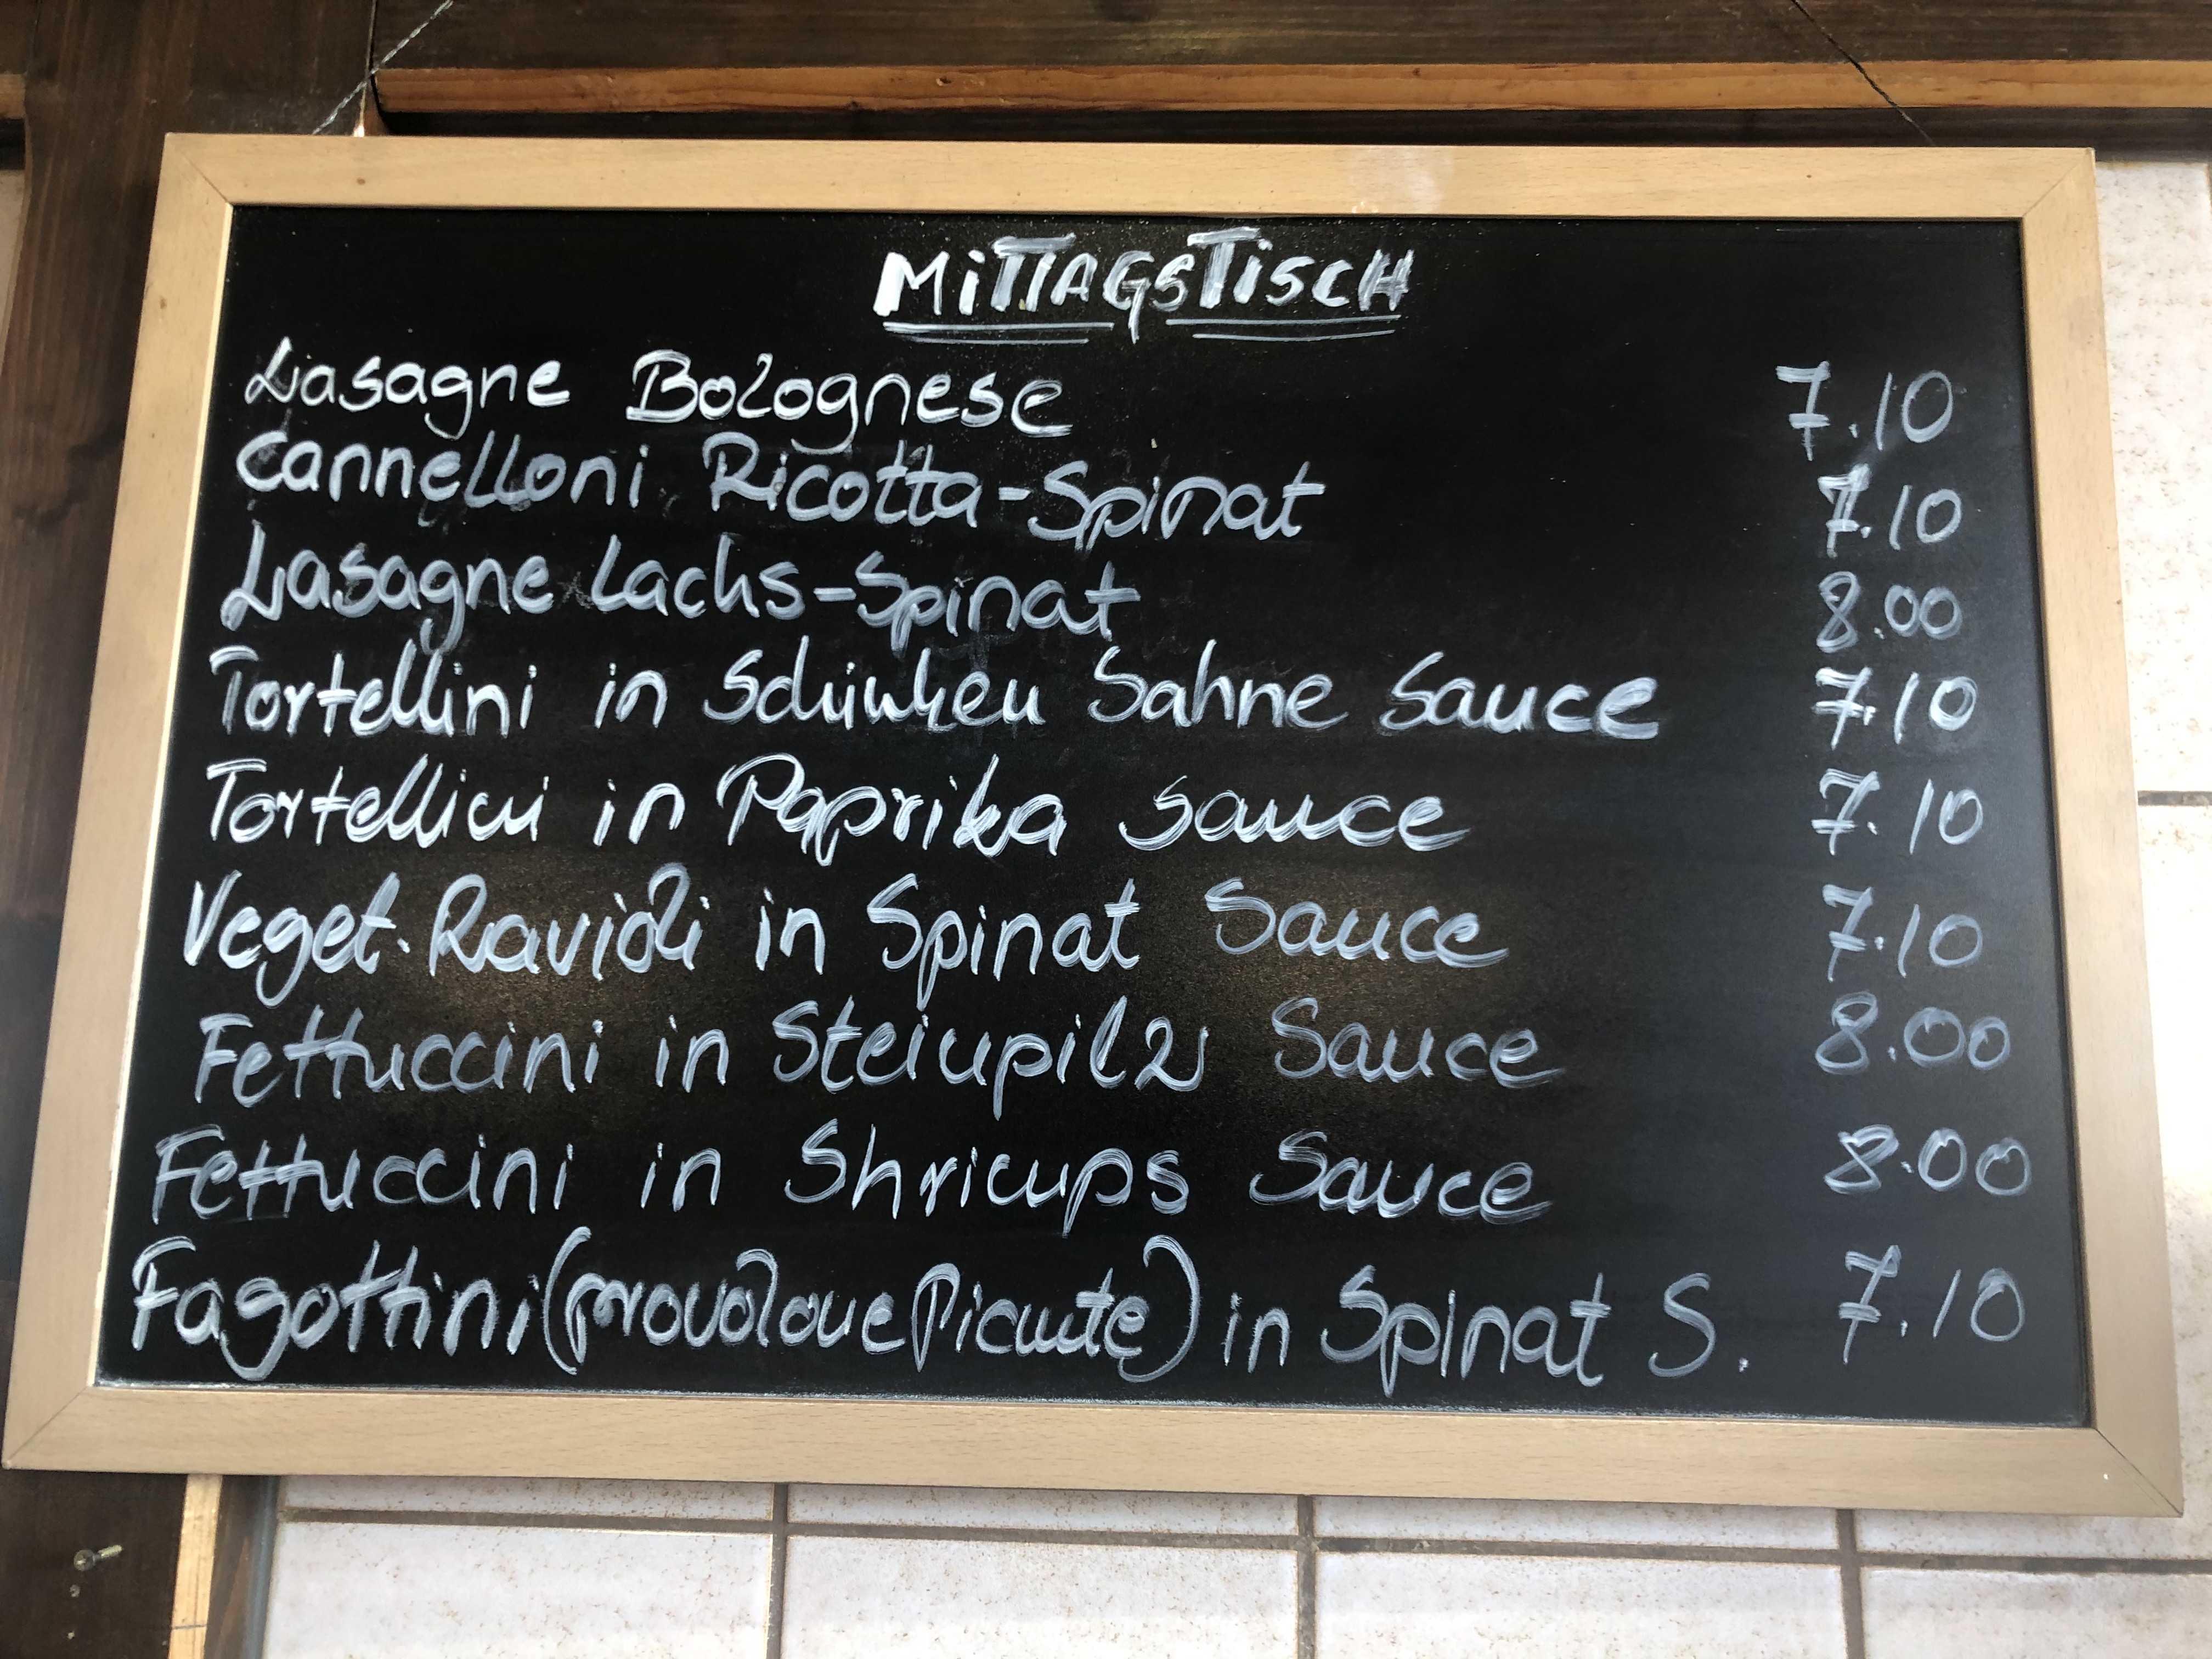 MiTTAGSTiSCH
Lasagne Bolognese 7.10
Cannelloni Ricotta-Spinat 7.10
Lasagne Lachs-Spinat 8.00
Tortellini in Schinken Sahne Sauce 7.10
Tortellini in Paprika Sauce 7.10
Veget. Ravioli in Spinat Sauce 7.10
Fettuccini in Steinpilz Sauce 8.00
Fettuccini in Shrimps Sauce 8.00
Fagottini (provolone Picante) in Spinat S. 7.10